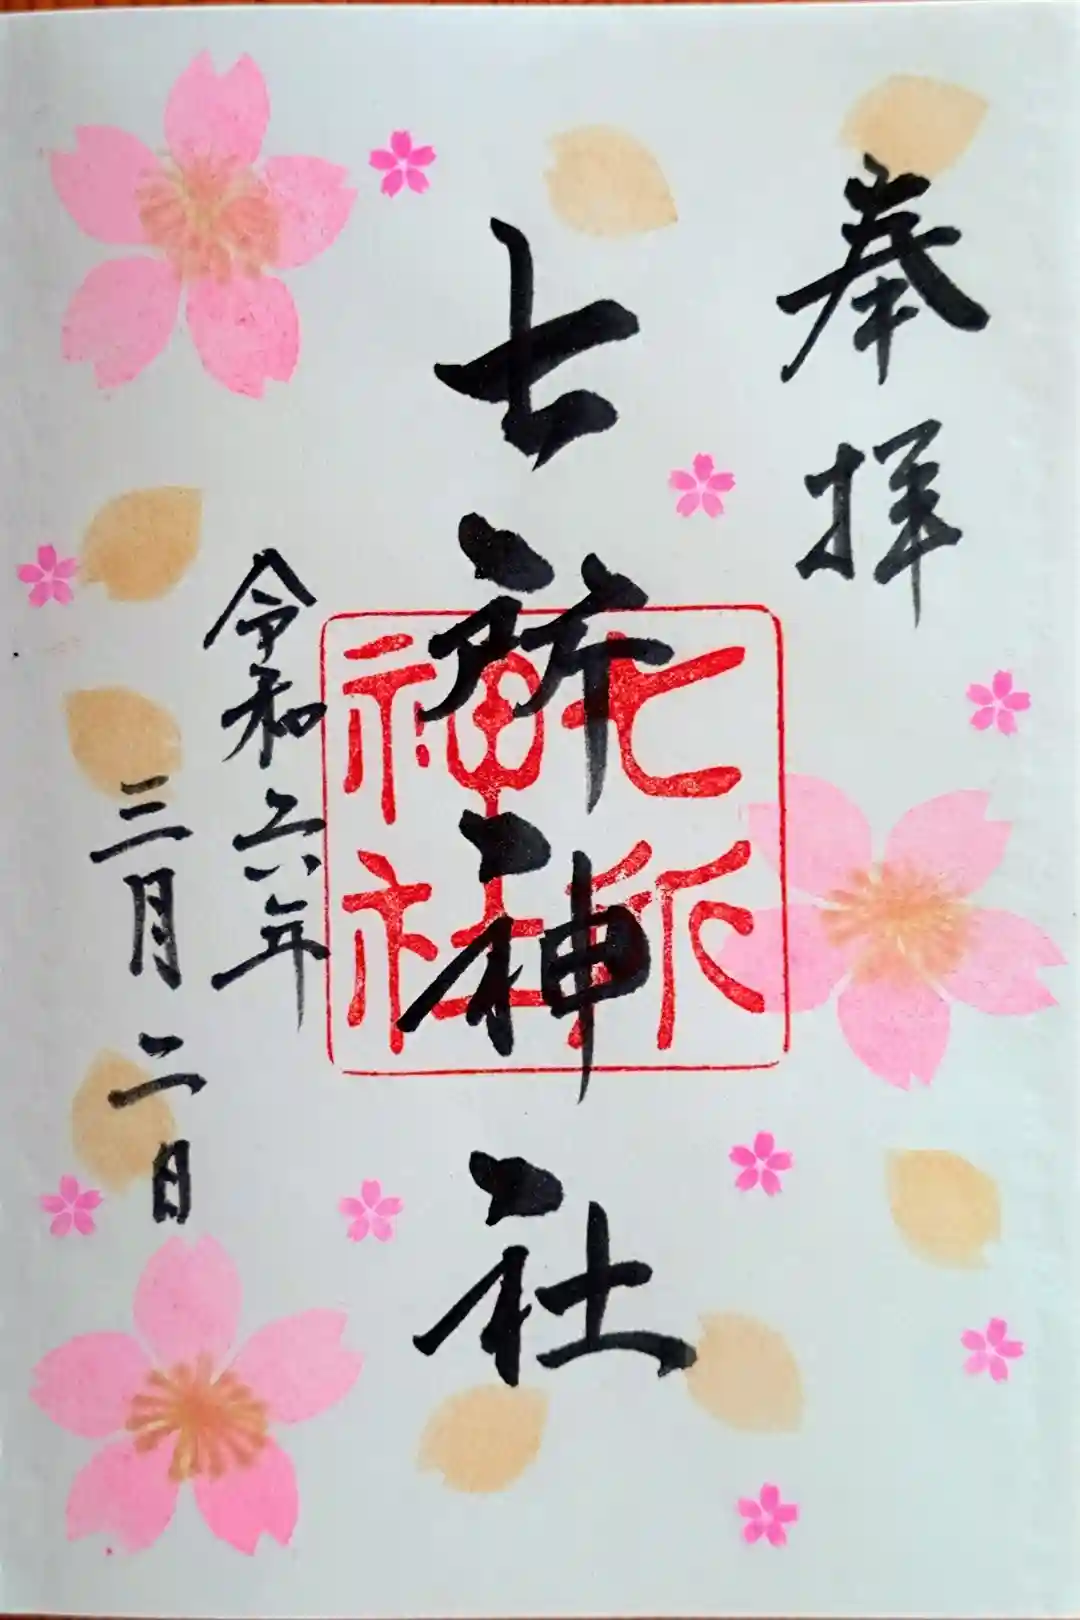 奉拝
七所神社
七所神社
令和六年
三月二日